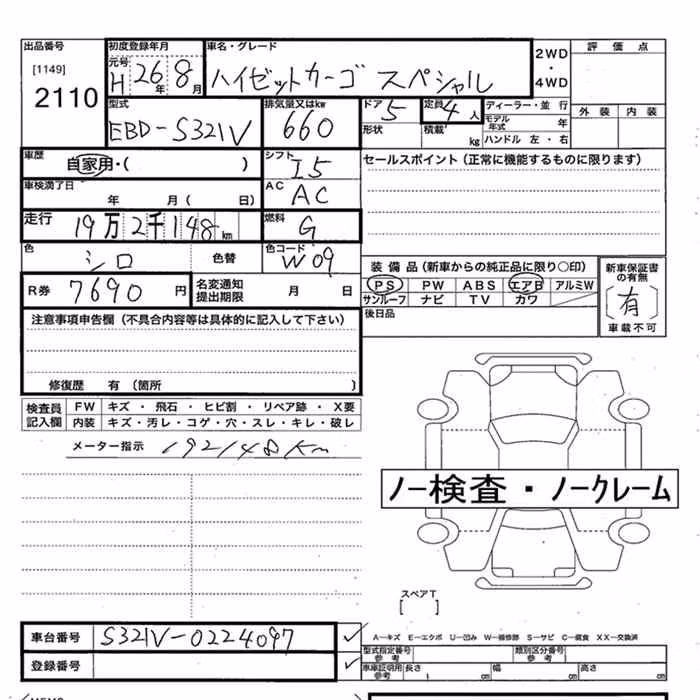 出品番号 初度登録年月 車名・グレード 2WD・4WD 評価点
[1149] 元号 H 26年 8月 ハイゼットカーゴ スペシャル
2110 外装 内装
型式 排気量又はkw ドア 5 定員 4人 ディーラー・並行
EBD-S321V 660 形状 積載 kg モデル年式 年
ハンドル 左・右
車歴 自家用・( ) シフト I5 セールスポイント(正常に機能するものに限ります)
車検満了日 年 月( 日) AC AC
走行 19万2千148km 燃料 G
色 シロ 色替 色コード W09 装備品(新車からの純正品に限り○印) 新車保証書の有無
PS PW ABS エアB アルミW [有]
R券 7690円 名変通知提出期限 月 日 サンルーフ ナビ TV カワ 車載不可
注意事項申告欄(不具合内容等は具体的に記入して下さい) 後日品
修復歴 有(箇所 )
検査員記入欄 FW キズ・飛石・ヒビ割・リペア跡・X要
内装 キズ・汚レ・コゲ・穴・スレ・キレ・破レ
メーター指示 192148Km
ノー検査・ノークレーム
スペアT
[ ]
車台番号 S321V-0224097 ✓ A―キズ E―エクボ U―凹み W―補修跡 S―サビ C―腐食 XX―交換済
型式指定番号 参考 類別区分番号 参考
登録番号 ✓ 車庫証明用参考 長さ cm 幅 cm 高さ cm
MEMO